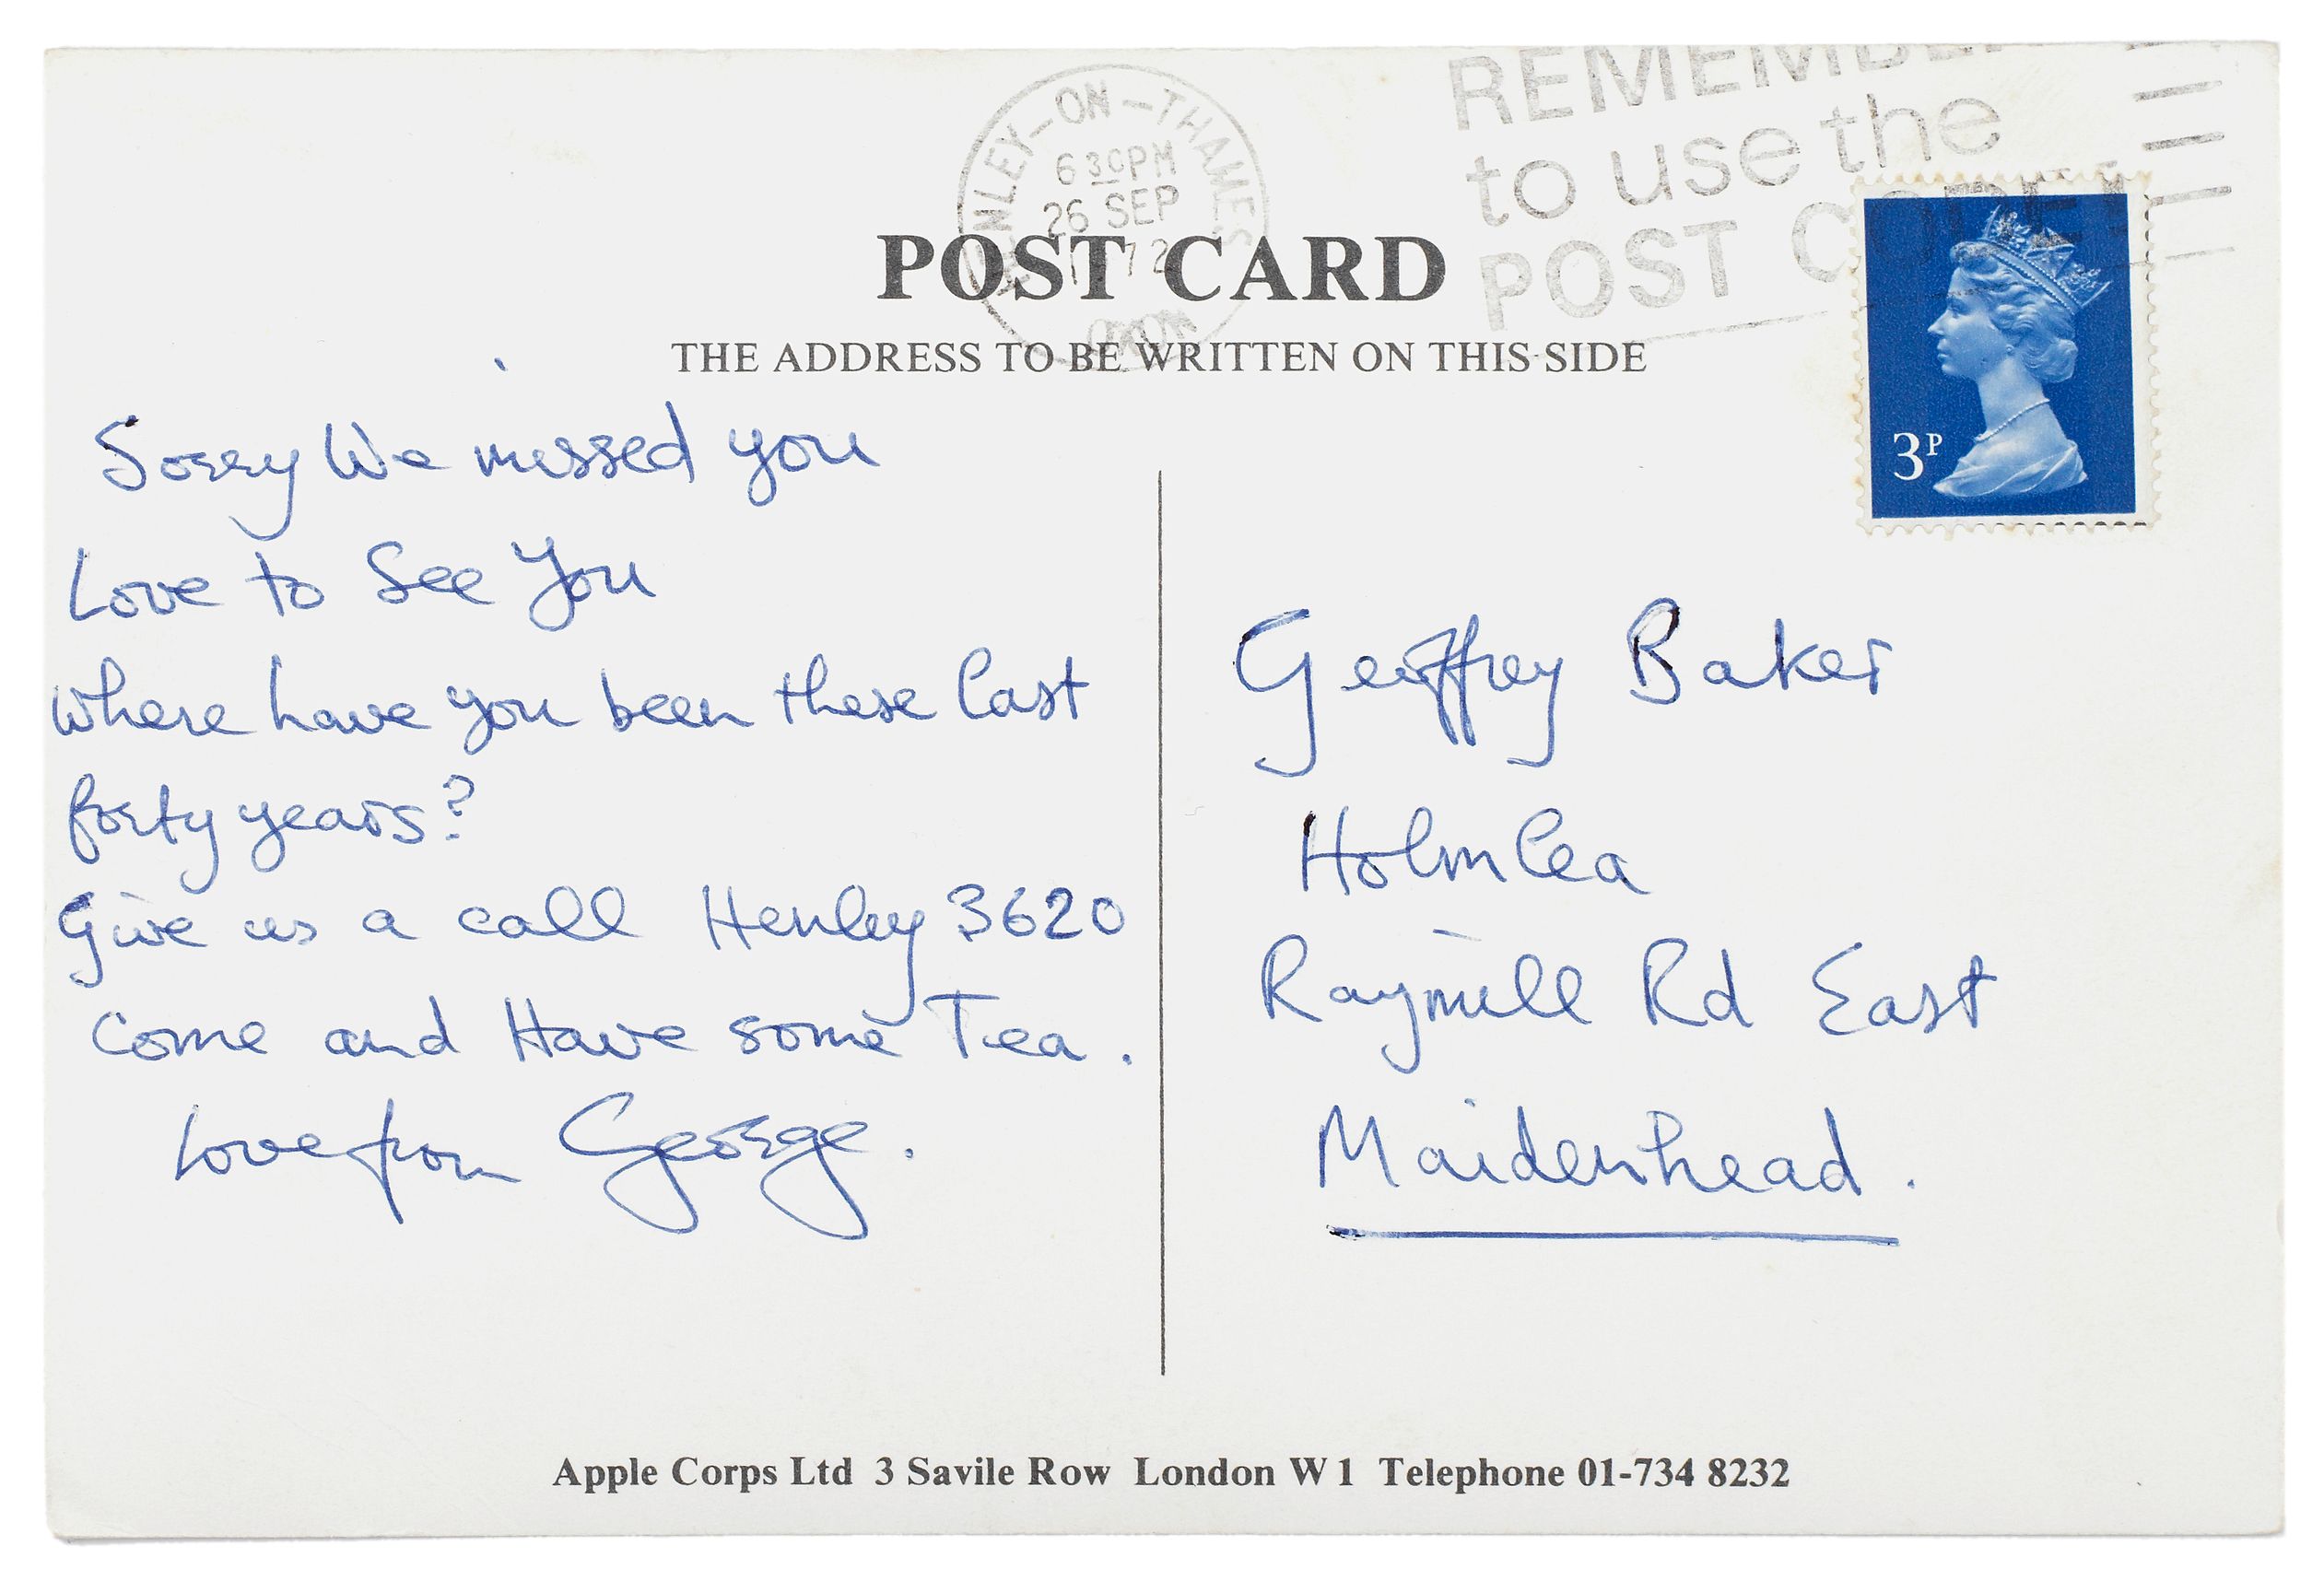 HENLEY-ON-THAMES
6 30PM
26 SEP
1972
OXON
REMEMBER
to use the
POST CODE
POST CARD
THE ADDRESS TO BE WRITTEN ON THIS SIDE
3P
Sorry We missed you
Love to See You
where have you been these last
forty years?
Give us a call Henley 3620
Come and Have some Tea.
Love from George.
Geoffrey Baker
Holmlea
Raymill Rd East
Maidenhead.
Apple Corps Ltd 3 Savile Row London W1 Telephone 01-734 8232